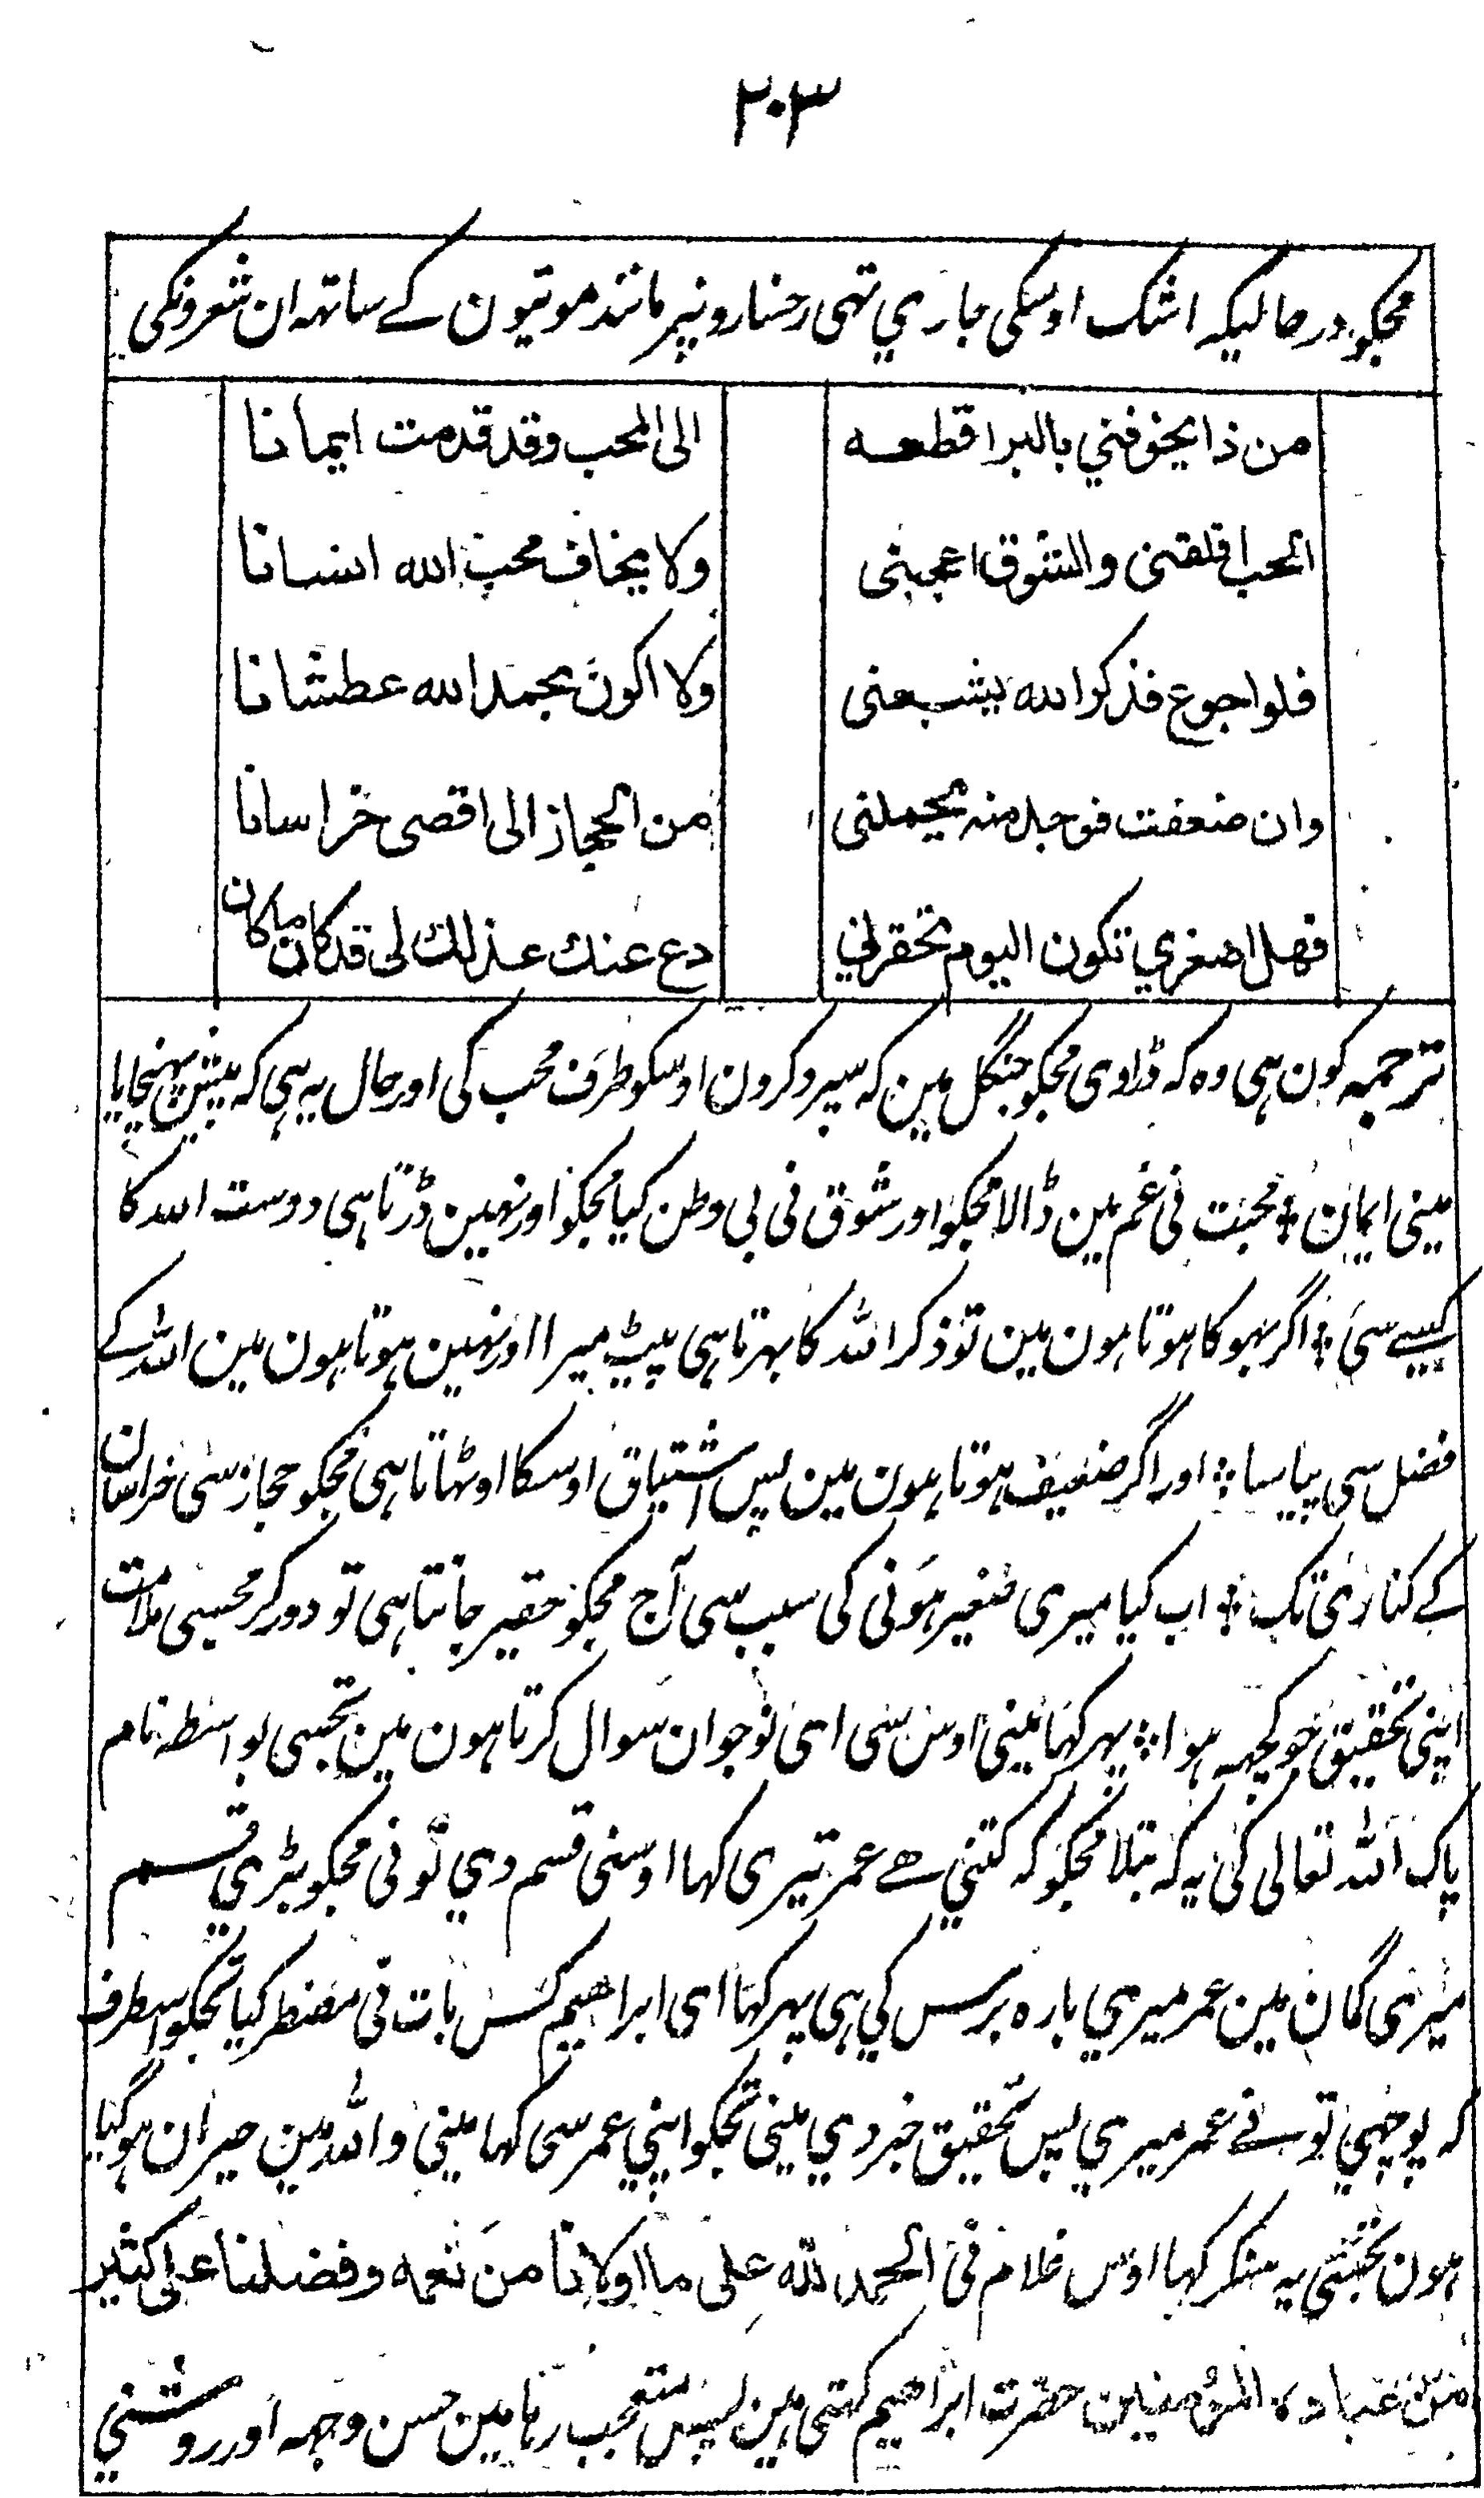 ۲۰۳
مجکو درحالیکہ اشک اوسکی جاري تہی رخسارونپر مانند موتیون کے ساتھ ان شعرونکی
من ذا يخوفني بالبر اقطعه الى المحب وقد قدمت ايمانا
الحب اقلقنى والشوق اعجبنى ولا يخاف محب الله انسانا
فلو اجوع فذكر الله يشبعنى ولا اكون بحمد الله عطشانا
وان ضعفت فوجد منه يحملنى من الحجاز الى اقصى خراسانا
فهل لصغري تكون اليوم تحقرني دع عنك عذلك لى قد كان ماكان
ترجمہ کون ہی وہ کہ ڈراوی مجکو جنگل مین کہ سپرد کرون اوسکو طرف محب کی اور حال یہ ہی کہ پیش پہنچایا
مینی ایمان ؛ محبت نی غم مین ڈالا مجکو اور شوق نی بی وطن کیا مجکو اور نہین ڈرتا ہی دوست اللہ کا
کسیسے سی ؛ اگر بہوکا ہوتا ہون مین تو ذکر اللہ کا بہرتا ہی پیٹ میرا اور نہین ہوتا ہون مین اللہ کے
فضل سی پیاسا ؛ اور اگر ضعیف ہوتا ہون مین پس اشتیاق اوسکا اوٹہاتا ہی مجکو حجاز سی خراسان
کے کناری تک ؛ اب کیا میری صغیر ہونی کی سبب سی آج مجکو حقیر جانتا ہی تو دور کر مجسی ملامت
اپنی تحقیق جو کچہہ ہوا ؛ پہر کہا مینی اوس سی ای نوجوان سوال کرتا ہون مین تجسی بواسطہ نام
پاک اللہ تعالی کی یہ کہ بتلا مجکو کہ کتنی ھے عمر تیری کہا اوسنی قسم دي تو نی مجکو بڑي قسم
میری گمان مین عمر میري بارہ برس کي ہی پہر کہا ای ابراھیم کس بات نی مضطر کیا تجکو اسطرف
کہ پوچہی تو نے عمر میري پس تحقیق خبر دي مینی تجکو اپني عمر سی کہا مینی واللہ مین حیران ہوگیا
ہون تجسی یہ سنکر کہا اوس غلام نی الحمد لله على ما اولانا من نعمه وفضلنا على كثير
من عباده المؤمنين حضرت ابراھیم کہتی ہین پس متعجب رہا مین حسن وجہ اور روشني